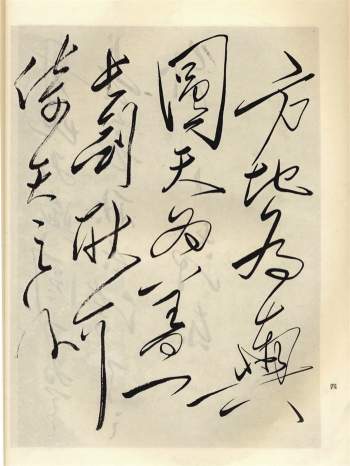 方地為輿
圓天為蓋
長劍耿介
倚天之外
四